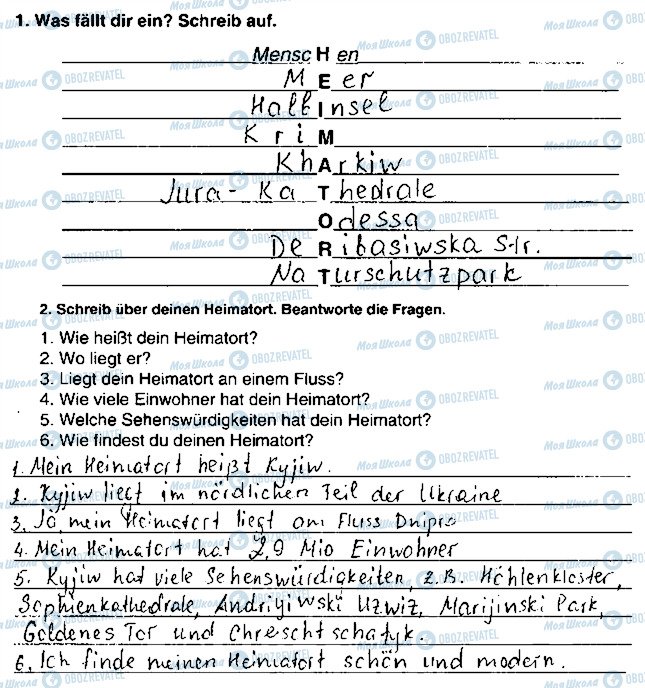 1. Was fällt dir ein? Schreib auf.
MenscHen
MEer
HalbInsel
KriM
KhArkiw
Jura-KaThedrale
Odessa
DeRibasiwska Str.
NaTurschutzpark
2. Schreib über deinen Heimatort. Beantworte die Fragen.
1. Wie heißt dein Heimatort?
2. Wo liegt er?
3. Liegt dein Heimatort an einem Fluss?
4. Wie viele Einwohner hat dein Heimatort?
5. Welche Sehenswürdigkeiten hat dein Heimatort?
6. Wie findest du deinen Heimatort?
1. Mein Heimatort heißt Kyjiw.
2. Kyjiw liegt im nördlichen Teil der Ukraine
3. Ja, mein Heimatort liegt am Fluss Dnipro
4. Mein Heimatort hat 2,9 Mio Einwohner
5. Kyjiw hat viele Sehenswürdigkeiten, z.B. Höhlenkloster,
Sophienkathedrale, Andriyiwski Uzwiz, Marijinski Park,
Goldenes Tor und Chreschtschatyk.
6. Ich finde meinen Heimatort schön und modern.
Моя Школа OBOZREVATEL